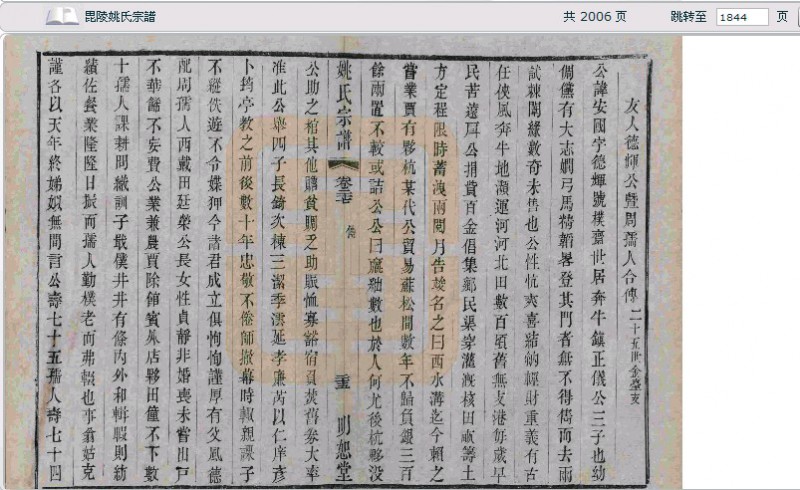 毘陵姚氏宗譜 共 2006 页 跳转至 1844 页
友人德輝公暨周孺人合傳 二十五世金臺支
公諱安國字德輝號樸齋世居奔牛鎮正儀公三子也幼
倜儻有大志嫻弓馬精韜畧登其門者無不得儁而去兩
試棘闈緣數奇未售也公性忼爽喜結納輕財重義有古
任俠風奔牛地瀕運河河北田數百頃舊無支港每歲旱
民苦遠戽公捐貲百金倡集鄉民渠穿灌漑核田畝籌土
方定程限時蓄洩兩閱月告竣名之曰西水溝迄今賴之
嘗業賈有夥杭某代公貿易蘇松間數年不歸負鏹三百
餘兩置不較或詰公公曰數也於人何尤後杭夥没
姚氏宗譜 卷 傳 則恕堂
公助之棺其他賙貧賜乏助賑恤寡豁宿負焚舊劵大率
准此公舉四子長錡次棟三潔季澐延孝廉芮以仁庠彦
卜筠亭教之前後數十年忠敬不倦師撤幕時輒親課子
不縱佚遊不令媟狎今諸君成立俱恂恂謹厚有父風德
配周孺人西戴田廷榮公長女性貞靜非婚喪未嘗出戶
不華飾不妄費公業兼農賈除館賓店夥田僮不下數
十孺人課耕問織訓子僕井井有條內外和輯暇則紡
績佐餐業隆隆日振而孺人勤樸老而弗輟也事翁姑克
謹各以天年終娣姒無間言公壽七十五孺人壽七十四